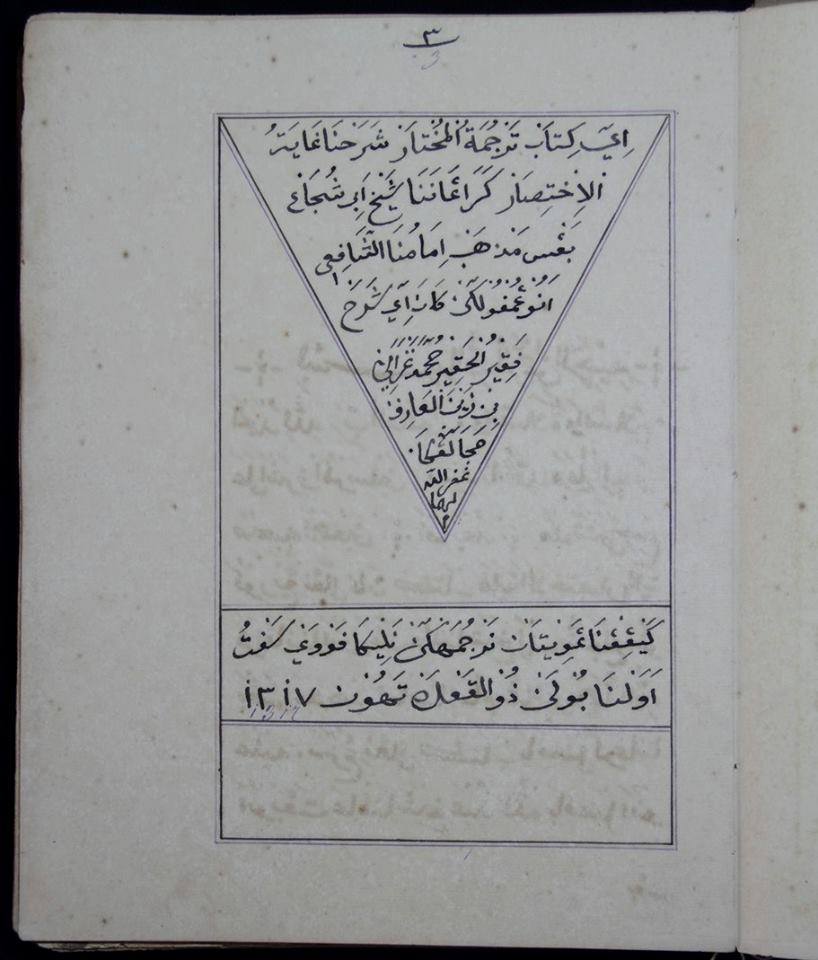 ٣
3
اِيَيْ كِتَابْ تَرْجُمَةْ اَلْمُخْتَارْ شَرَحْنَا غَايَةُ
الْاِخْتِصَارْ كَرَاغَانَنَا شَيْخْ اَبِى شُجَاعْ
بَڠْسَ مَذْهَبْ اِمَامُنَا الشَّافِعِى
اَنُوْ غُمْفُولَكَنْ كَانَ اِيَيْ شَرَحْ
فَقِيْرُ الْحَقِيْرْ مُحَمَّدْ غَزَالِيْ
بِنْ زَيْنَ الْعَارِفْ
مَجَالَڠْكَا
غفر الله
لهما
م
غَمُوِيْتَانْ تَرْجُمَهْكَنْ نَلِيْكَا فَوْوَيْ سَفْتُ
اَوَلْنَا بُولَنْ ذُوالْقَعْدَةْ تَهُوْنْ ١٣١٧
1317